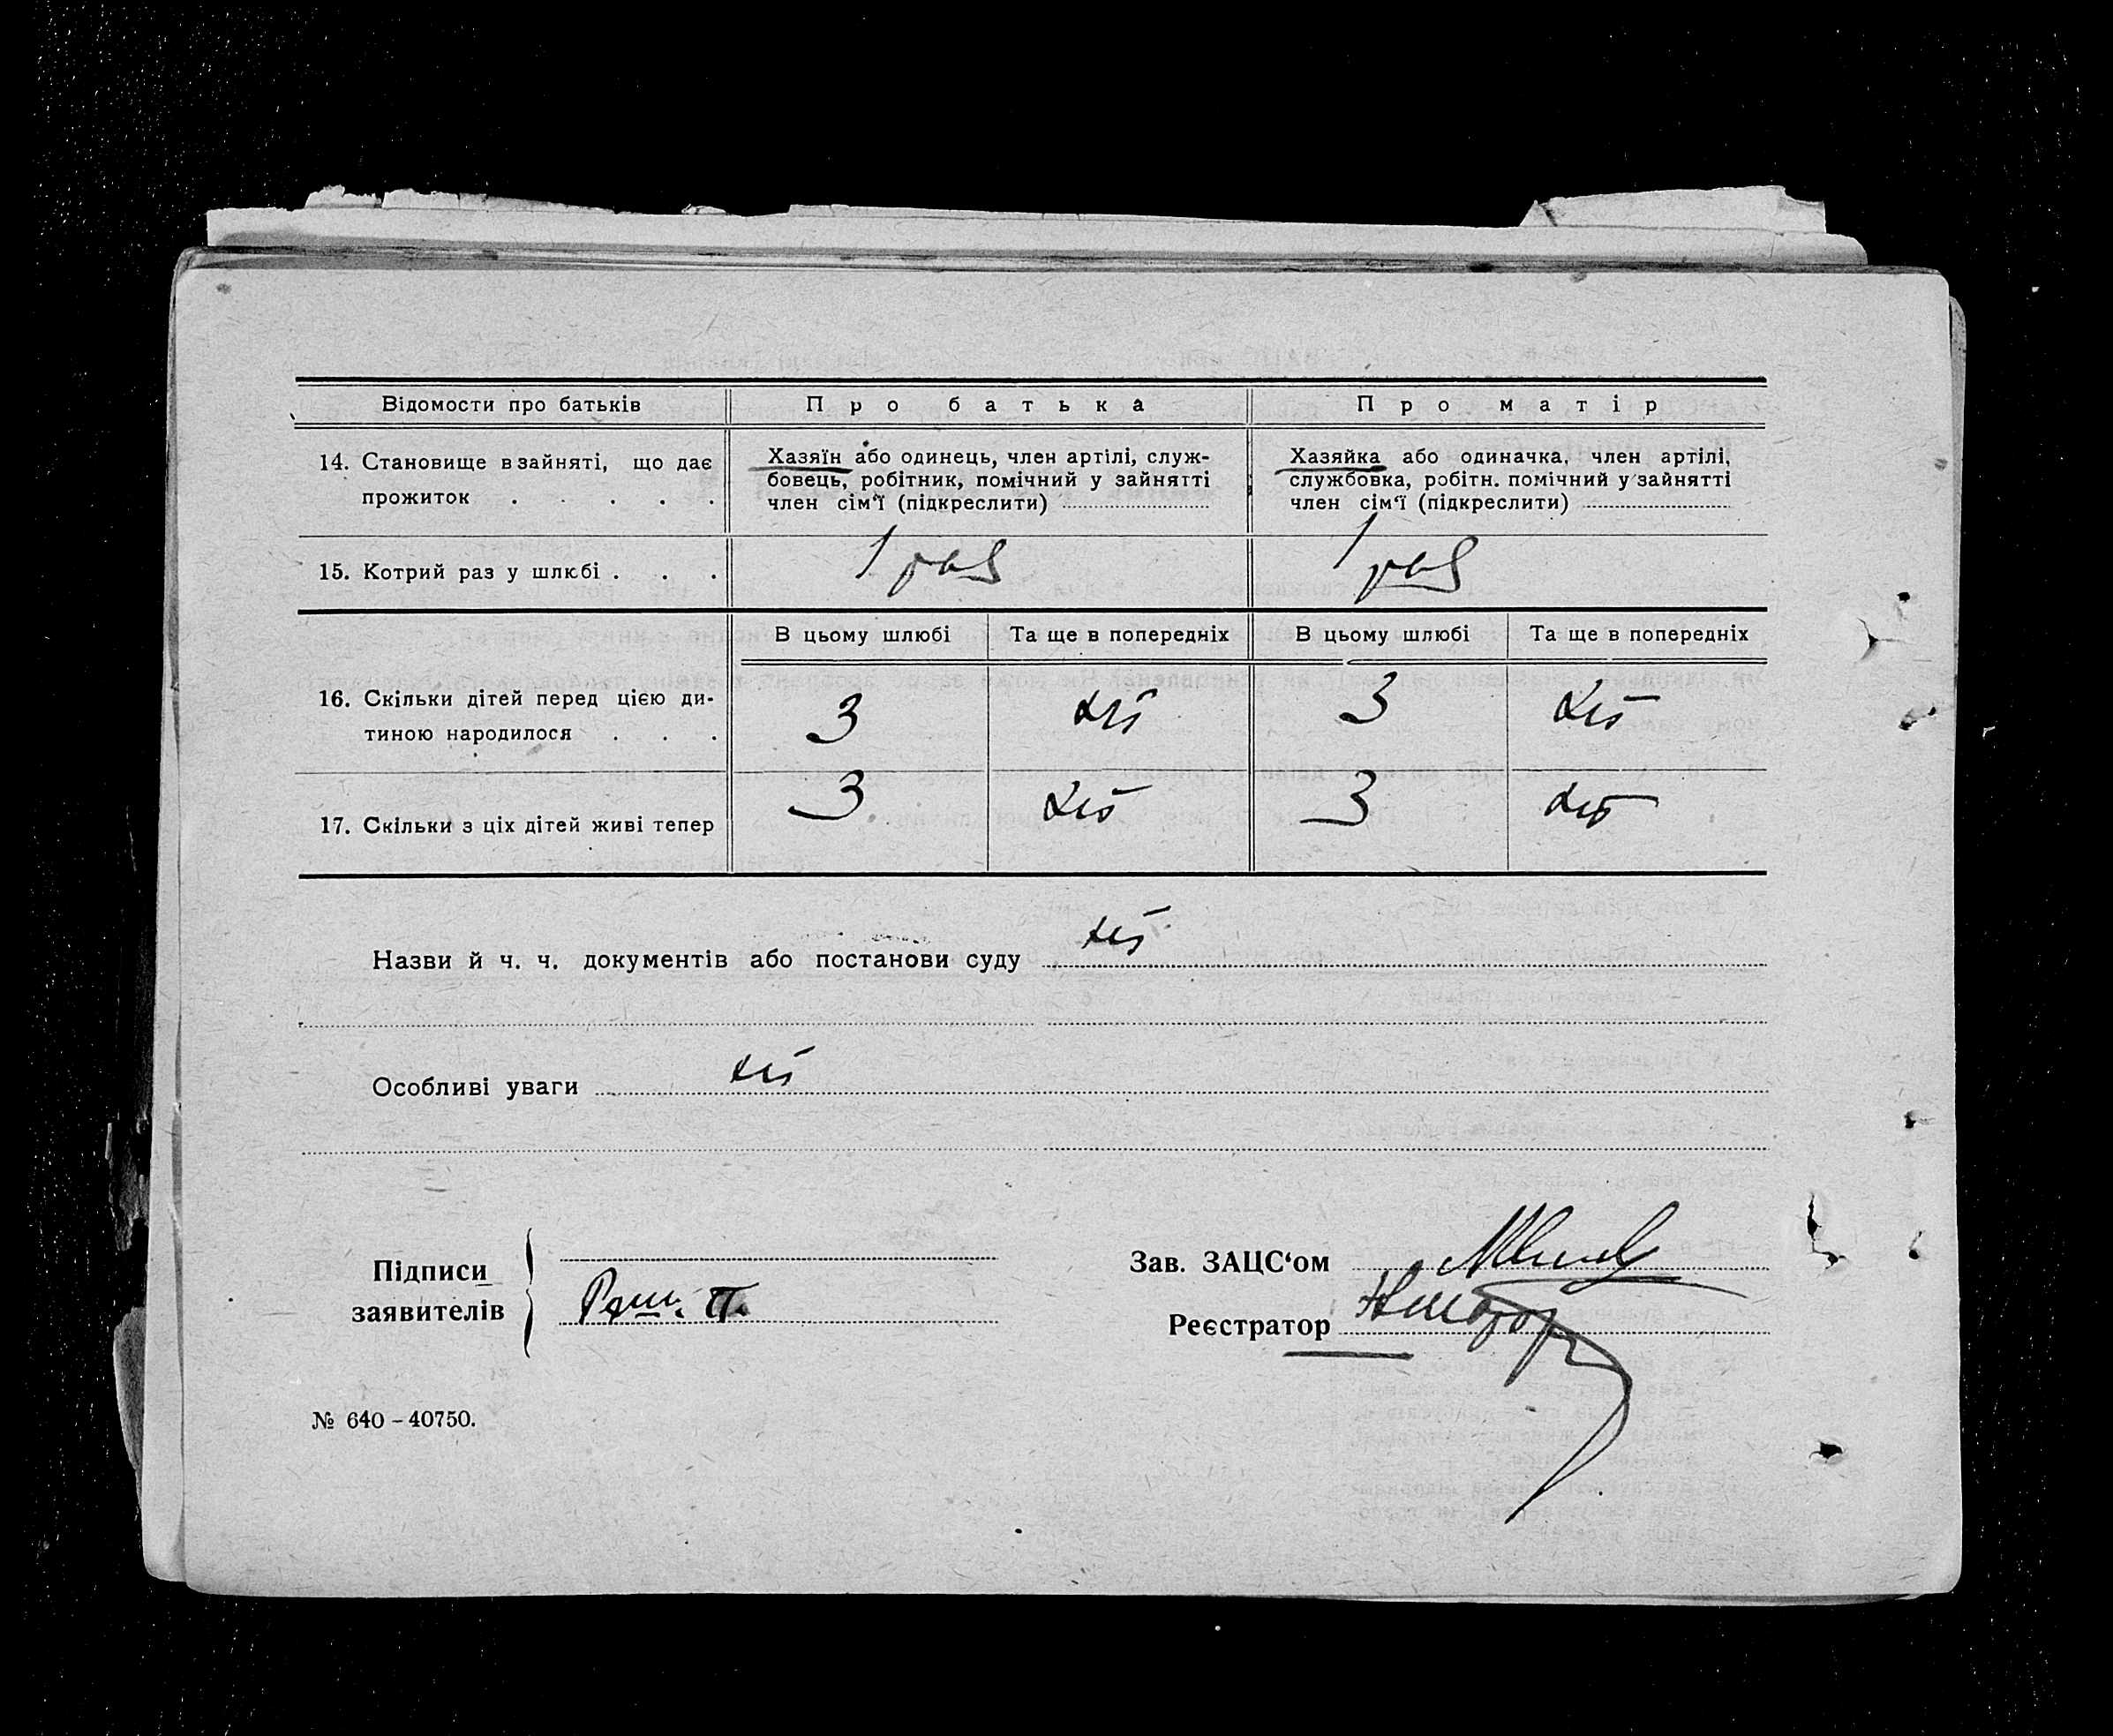 Відомости про батьків Про батька Про матір
14. Становище в зайняті, що дає
прожиток . . . . .
Хазяїн або одинець, член артілі, служ-
бовець, робітник, помічний у зайнятті
член сім‘ї (підкреслити)
Хазяйка або одиначка, член артілі,
службовка, робітн. помічний у зайнятті
член сім‘ї (підкреслити)
15. Котрий раз у шлюбі . . . 1 раз 1 раз
В цьому шлюбі Та ще в попередніх В цьому шлюбі Та ще в попередніх
16. Скільки дітей перед цією ди-
тиною народилося . . .
3 3
17. Скільки з ціх дітей живі тепер 3 3
Назви й ч. ч. документів або постанови суду
Особливі уваги
Підписи
заявителів
Зав. ЗАЦС‘ом
Реєстратор
№ 640 – 40750.